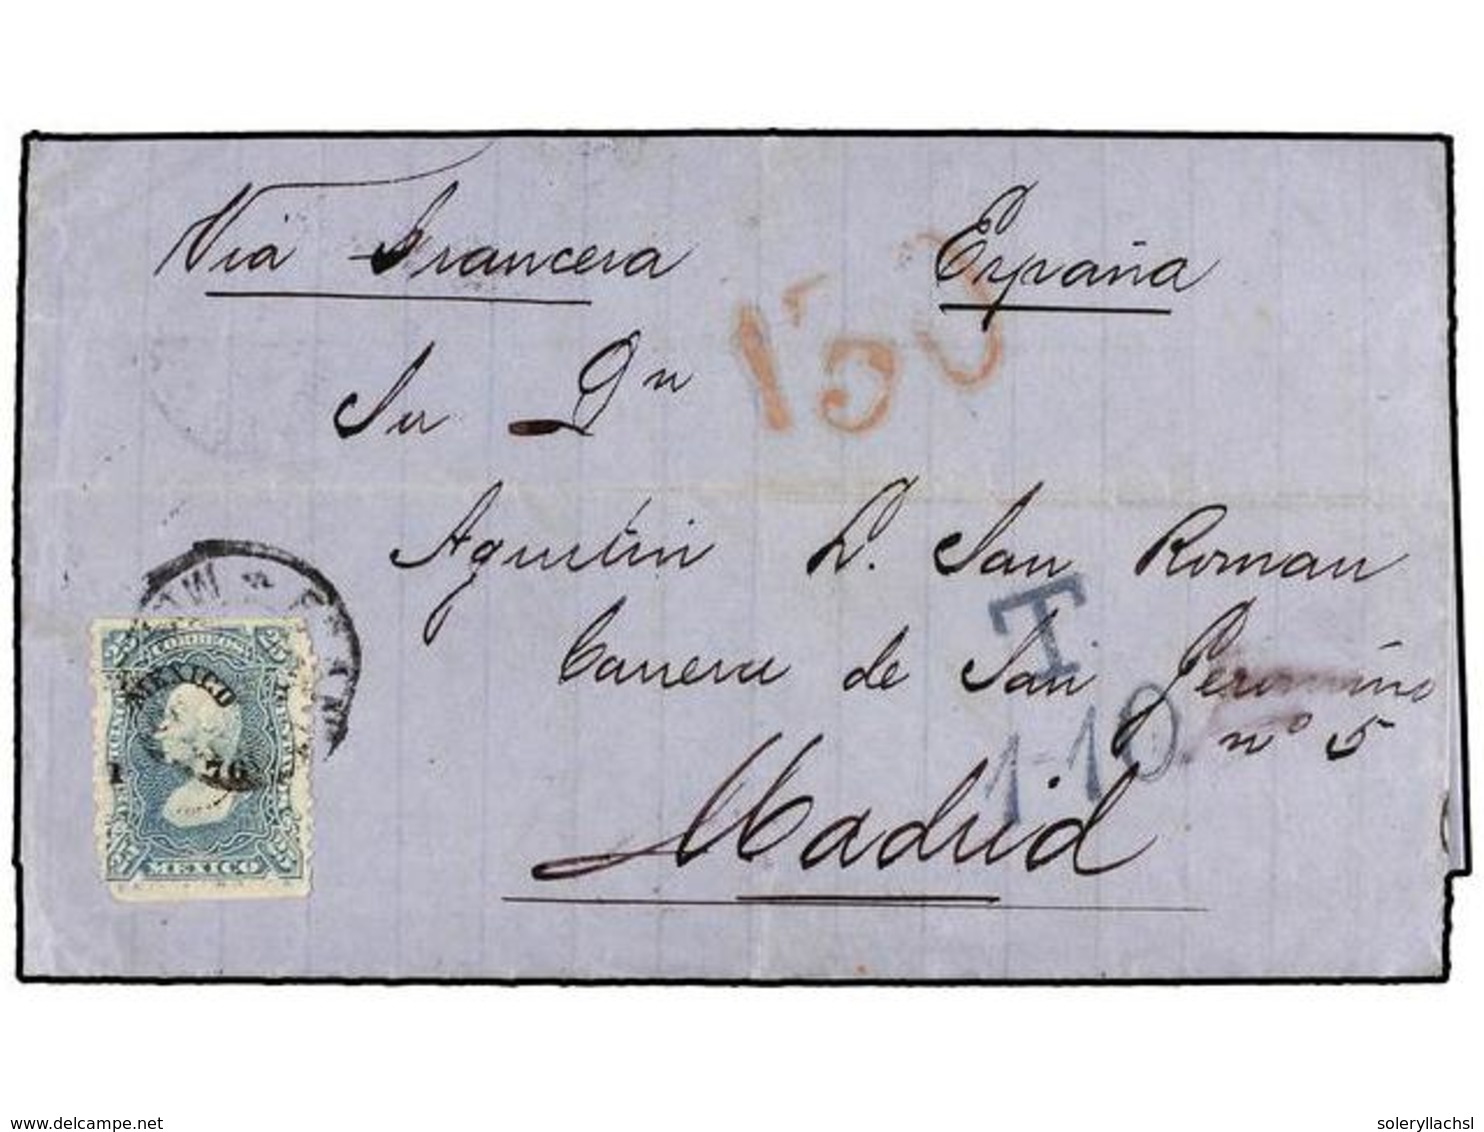 Via Francesa
España
1'50
Sr Dn
Agustin L. San Roman
T
Carrera de San Geronimo
nº 5
1-10
Madrid
25 CORREOS 25
MEXICO
76
25 MEXICO 25
delcampe.net
soleryllachsl